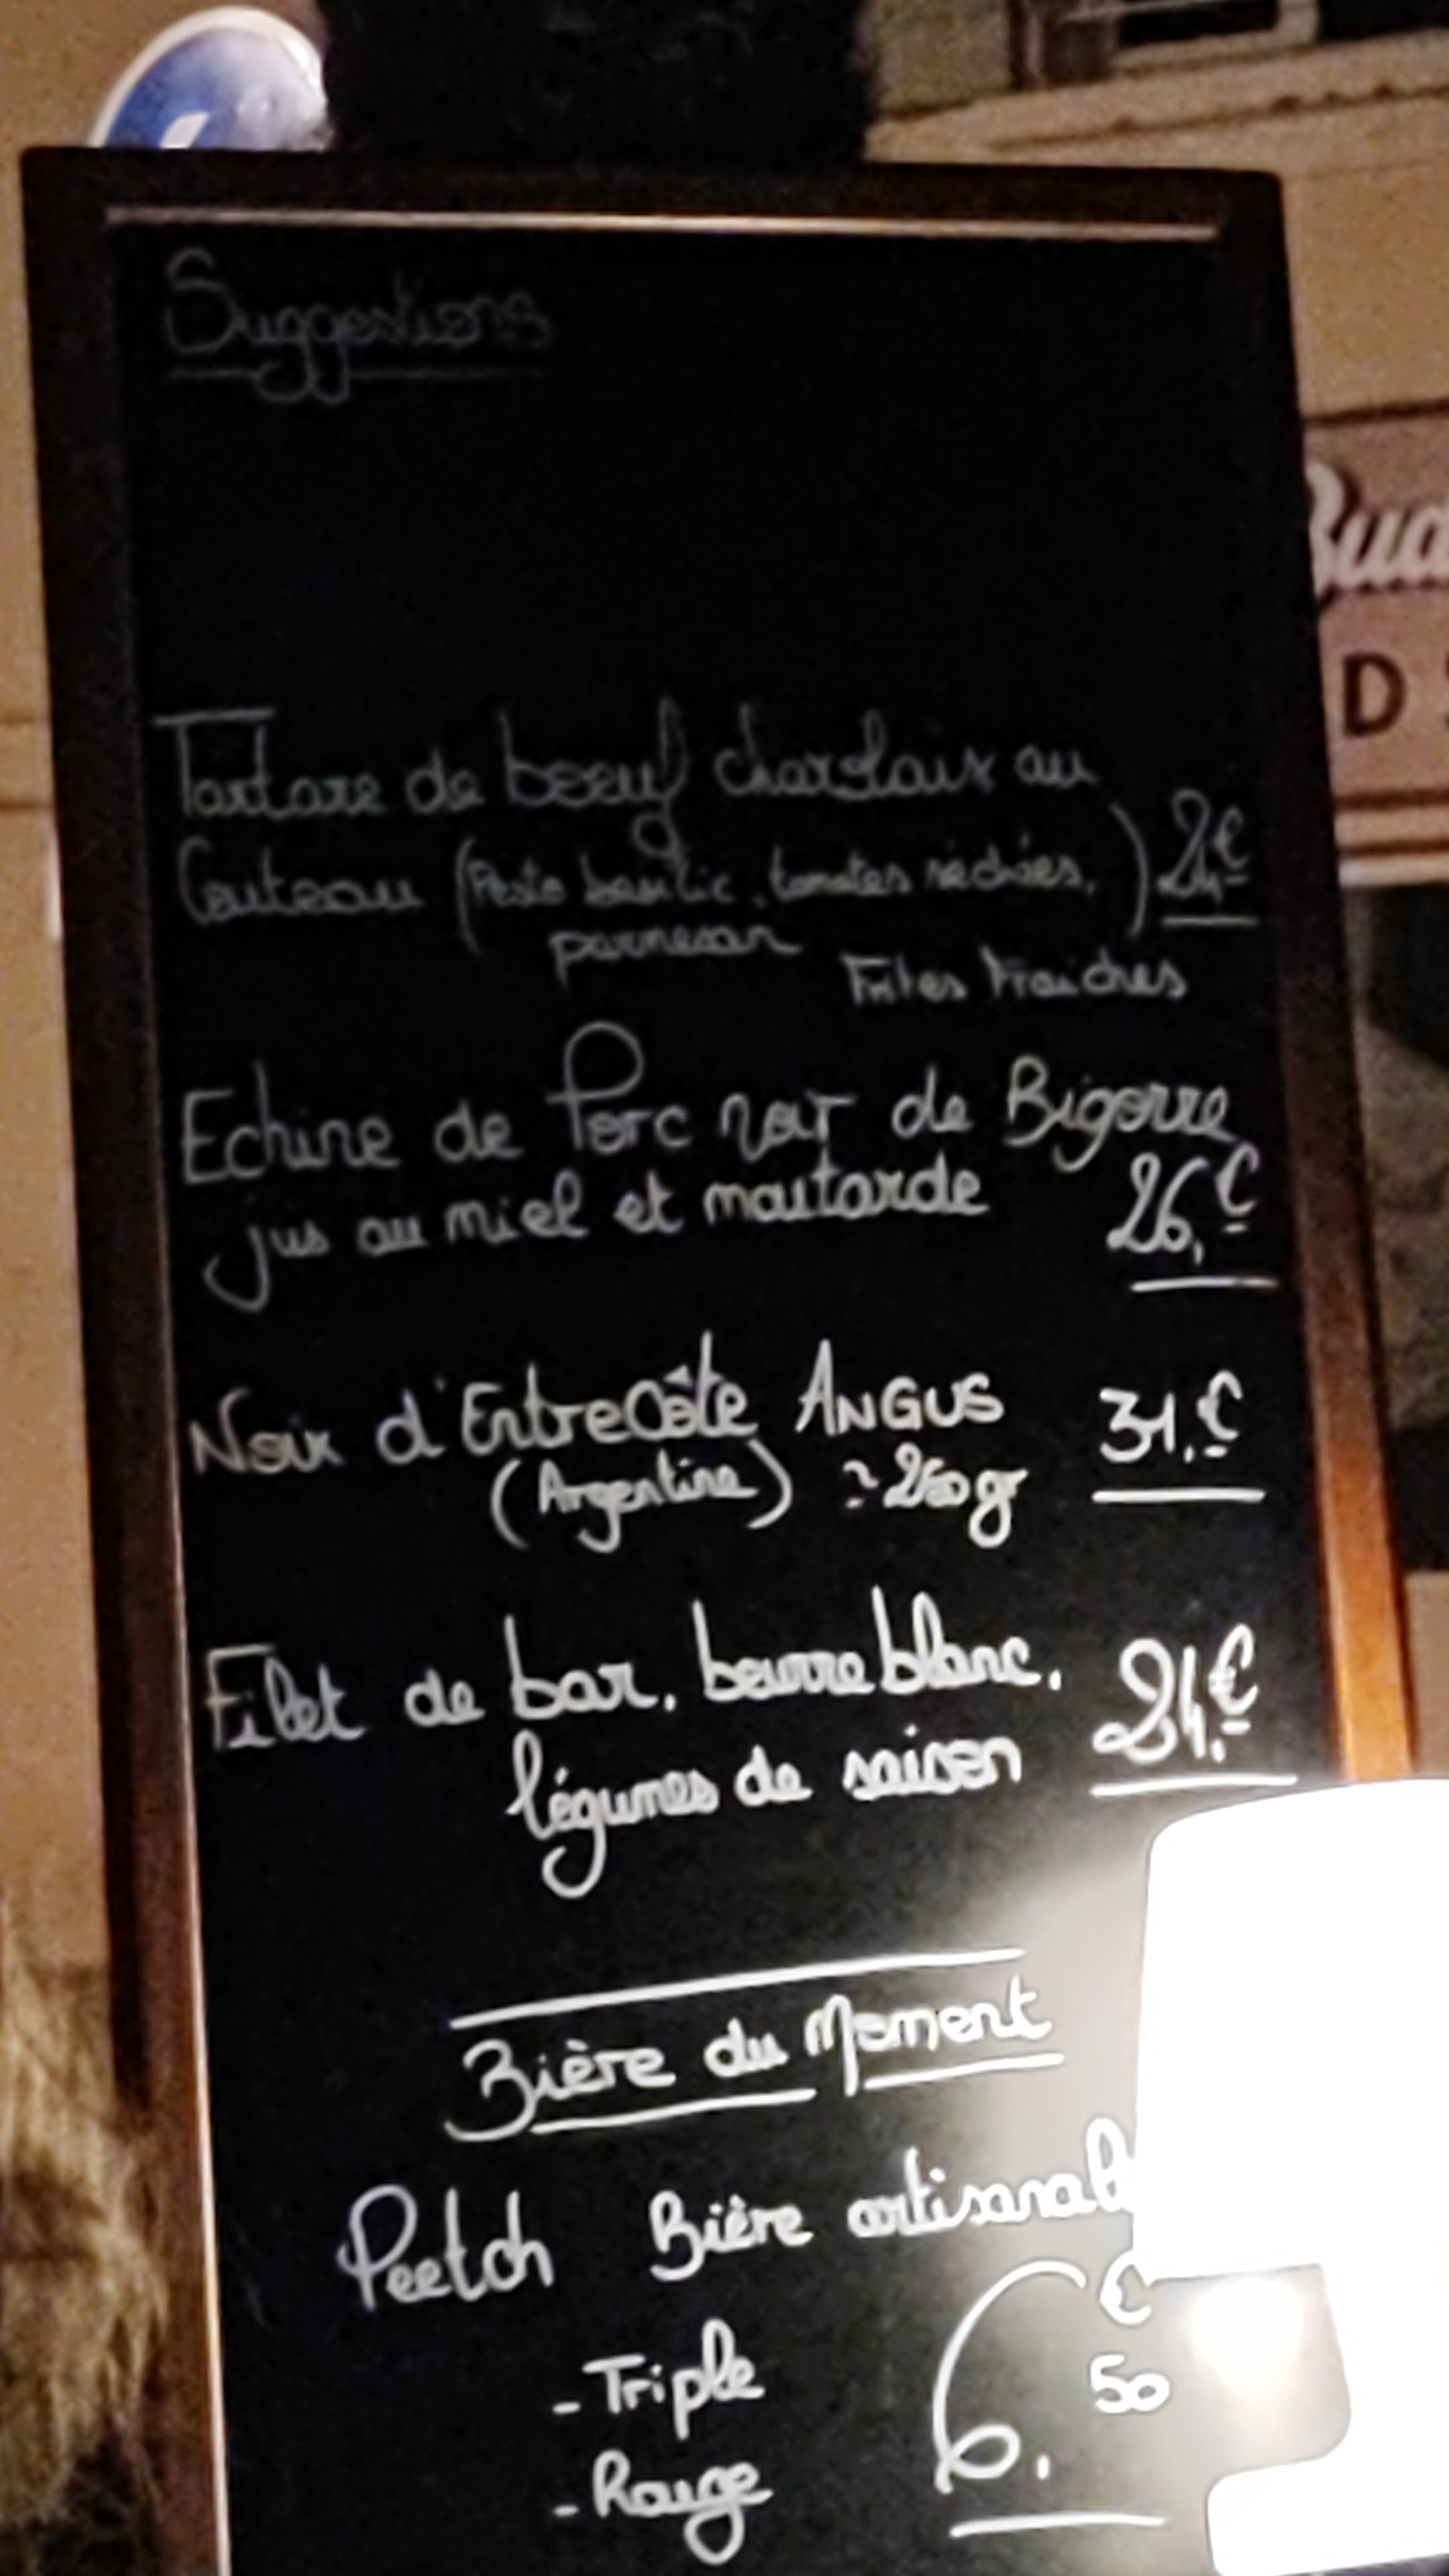 Suggestions
Tartare de boeuf charolais au
Couteau (Pesto basilic, tomates séchées, ) 24,€
parmesan
Frites fraiches
Echine de Porc noir de Bigorre
jus au miel et moutarde 26,€
Noix d'Entrecôte ANGUS 31,€
(Argentine) ~ 250gr
Filet de bar, beurre blanc, 24,€
légumes de saison
Bière du Moment
Peetch Bière artisanale
- Triple 6,€50
- Rouge
Bud
D